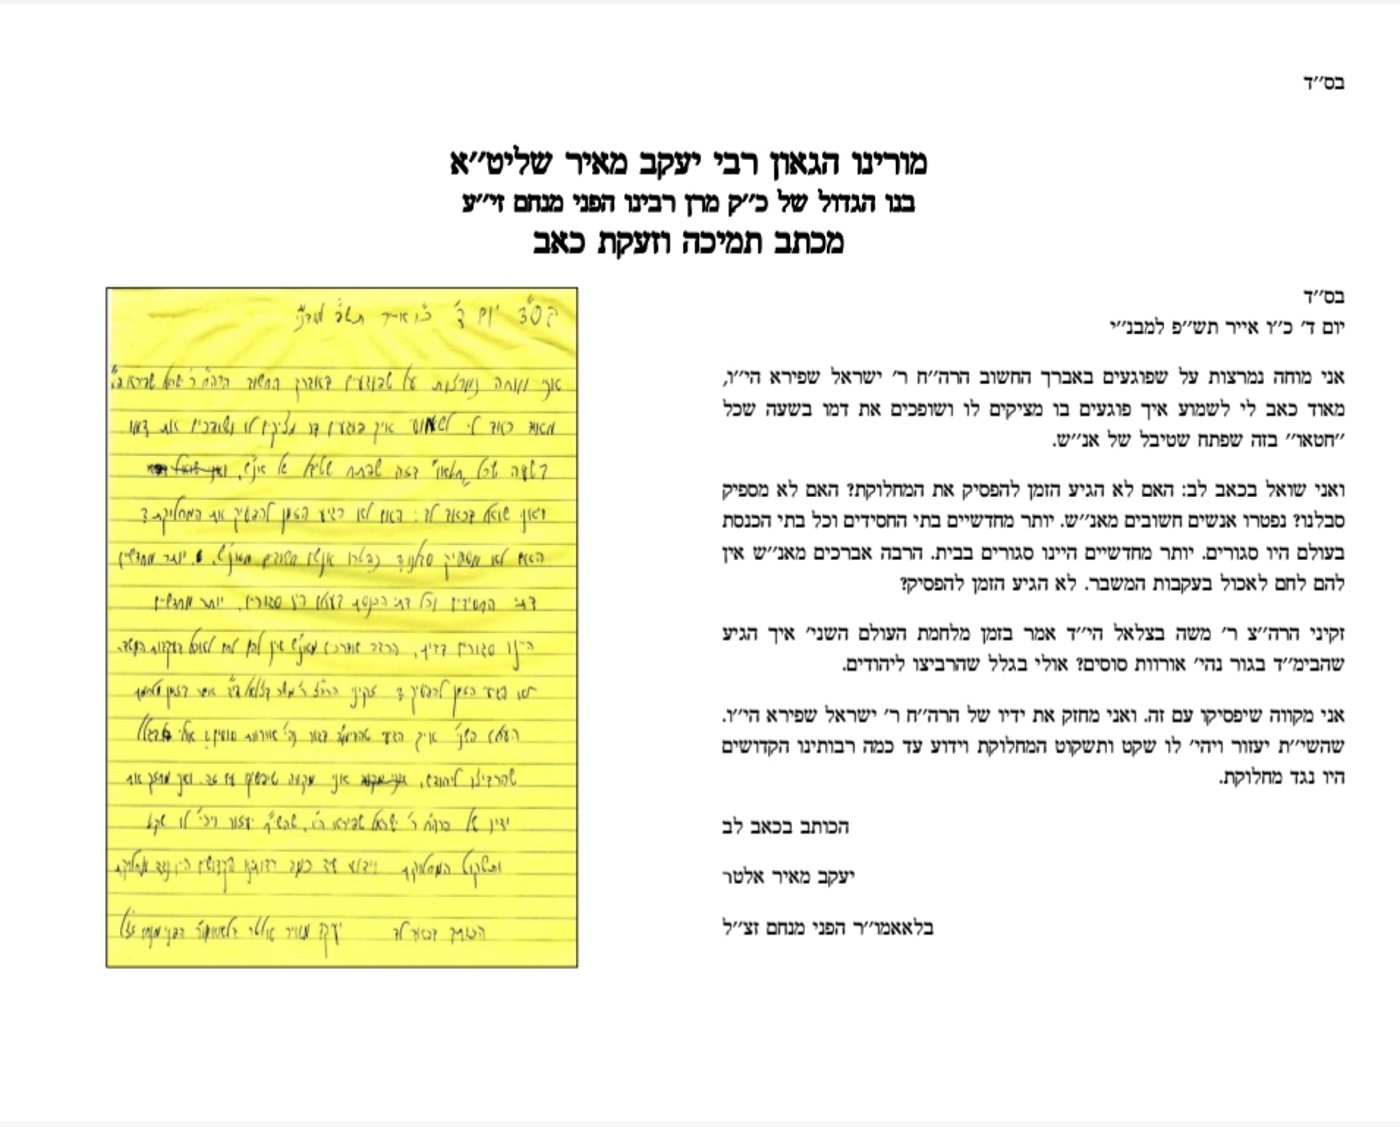 בס״ד
מורינו הגאון רבי יעקב מאיר שליט״א
בנו הגדול של כ״ק מרן רבינו הפני מנחם זי״ע
מכתב תמיכה וזעקת כאב
בס״ד
יום ד׳ כ״ו אייר תש״פ למבנ״י
אני מוחה נמרצות על שפוגעים באברך החשוב הרה״ח ר׳ ישראל שפירא הי״ו,
מאוד כאב לי לשמוע איך פוגעים בו מציקים לו ושופכים את דמו בשעה שכל
״חטאו״ בזה שפתח שטיבל של אנ״ש.
ואני שואל בכאב לב: האם לא הגיע הזמן להפסיק את המחלוקת? האם לא מספיק
סבלנו? נפטרו אנשים חשובים מאנ״ש. יותר מחדשיים בתי החסידים וכל בתי הכנסת
בעולם היו סגורים. יותר מחדשיים היינו סגורים בבית. הרבה אברכים מאנ״ש אין
להם לחם לאכול בעקבות המשבר. לא הגיע הזמן להפסיק?
זקיני הרה״צ ר׳ משה בצלאל הי״ד אמר בזמן מלחמת העולם השני׳ איך הגיע
שהבימ״ד בגור נהי׳ אורוות סוסים? אולי בגלל שהרביצו ליהודים.
אני מקווה שיפסיקו עם זה. ואני מחזק את ידיו של הרה״ח ר׳ ישראל שפירא הי״ו.
שהשי״ת יעזור ויהי׳ לו שקט ותשקוט המחלוקת וידוע עד כמה רבותינו הקדושים
היו נגד מחלוקת.
הכותב בכאב לב
יעקב מאיר אלטר
בלאאמו״ר הפני מנחם זצ״ל
בס״ד יום ד׳ כ״ו אייר תש״פ
אני מוחה נמרצות על שפוגעים באברך החשוב הרה״ח ר׳ ישראל שפירא
מאוד כאב לי לשמוע איך פוגעים בו מציקים לו ושופכים את דמו
בשעה שכל ״חטאו״ בזה שפתח שטיבל של אנ״ש.
ואני שואל בכאב לב: האם לא הגיע הזמן להפסיק את המחלוקת?
האם לא מספיק סבלנו? נפטרו אנשים חשובים מאנ״ש. יותר מחדשיים
בתי החסידים וכל בתי הכנסת בעולם היו סגורים. יותר מחדשיים
היינו סגורים בבית. הרבה אברכים מאנ״ש אין להם לחם לאכול בעקבות המשבר.
לא הגיע הזמן להפסיק? זקיני הרה״צ ר׳ משה בצלאל הי״ד אמר בזמן מלחמת
העולם השני׳ איך הגיע שהבימ״ד בגור נהי׳ אורוות סוסים? אולי בגלל
שהרביצו ליהודים. אני מקווה שיפסיקו עם זה. ואני מחזק את
ידיו של הרה״ח ר׳ ישראל שפירא הי״ו. שהשי״ת יעזור ויהי׳ לו שקט
ותשקוט המחלוקת וידוע עד כמה רבותינו הקדושים היו נגד מחלוקת
הכותב בכאב לב יעקב מאיר אלטר בלאאמו״ר הפני מנחם זצ״ל